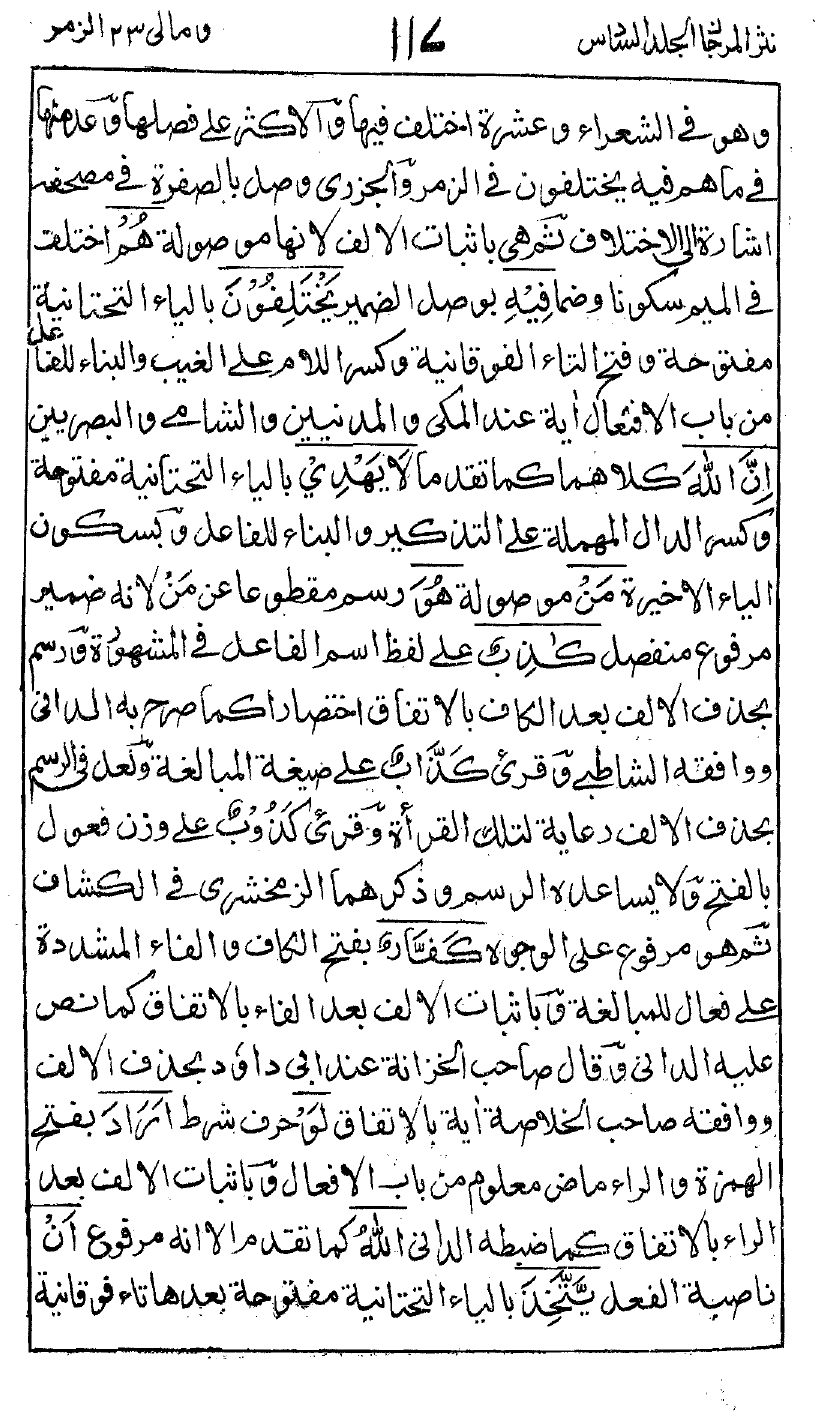 نثر المرجان الجلد السادس ١١٧ ومالى ٢٣ الزمر
وهو فى الشعراء وعشرة اختلف فيها وَالاكثر على فصلها وَعد منها
فى ما هم فيه يختلفون فى الزمر وَالجزرى وصل بالصفرة فى مصحفه
اشارة الى الاختلاف ثم هى باثبات الالف لانها موصولة هُمْ اختلف
فى الميم سكونا وضما فِيْهِ بوصل الضمير يَخْتَلِفُوْنَ بالياء التحتانية
مفتوحة وفتح التاء الفوقانية وكسر اللام على الغيب والبناء للفاعل
من باب الافتعال اٰية عند المكى والمدنيين والشامى والبصريين
اِنَّ اللّٰهَ كلاهما كما تقدما لَا يَهْدِىْ بالياء التحتانية مفتوحة
وكسر الدال المهملة على التذكير والبناء للفاعل وَبسكون
الياء الاخيرة مَنْ موصولة هُوَ رسم مقطوعا عن مَنْ لانه ضمير
مرفوع منفصل كٰذِبٌ على لفظ اسم الفاعل فى المشهورة وَرسم
بحذف الالف بعد الكاف بالاتفاق اختصارا كما صرح به الدانى
ووافقه الشاطبى وَقرئ كَذَّابٌ على صيغة المبالغة وَلعل فى الرسم
بحذف الالف رعاية لتلك القرأة وَقرئ كَذُوْبٌ على وزن فعول
بالفتح وَلا يساعده الرسم وذكرهما الزمخشرى فى الكشاف
ثم هو مرفوع على الوجوه كَفَّارٌ بفتح الكاف والفاء المشددة
على فعال للمبالغة وَباثبات الالف بعد الفاء بالاتفاق كما نص
عليه الدانى وَقال صاحب الخزانة عند ابى داؤد بحذف الالف
ووافقه صاحب الخلاصة اٰية بالاتفاق لَوْ حرف شرط اَرَادَ بفتح
الهمزة والراء ماض معلوم من باب الافعال وَباثبات الالف بعد
الراء بالاتفاق كما ضبطه الدانى اللّٰهُ كما تقدم الا انه مرفوع اَنْ
ناصبة الفعل يَّتَّخِذَ بالياء التحتانية مفتوحة بعدها تاء فوقانية